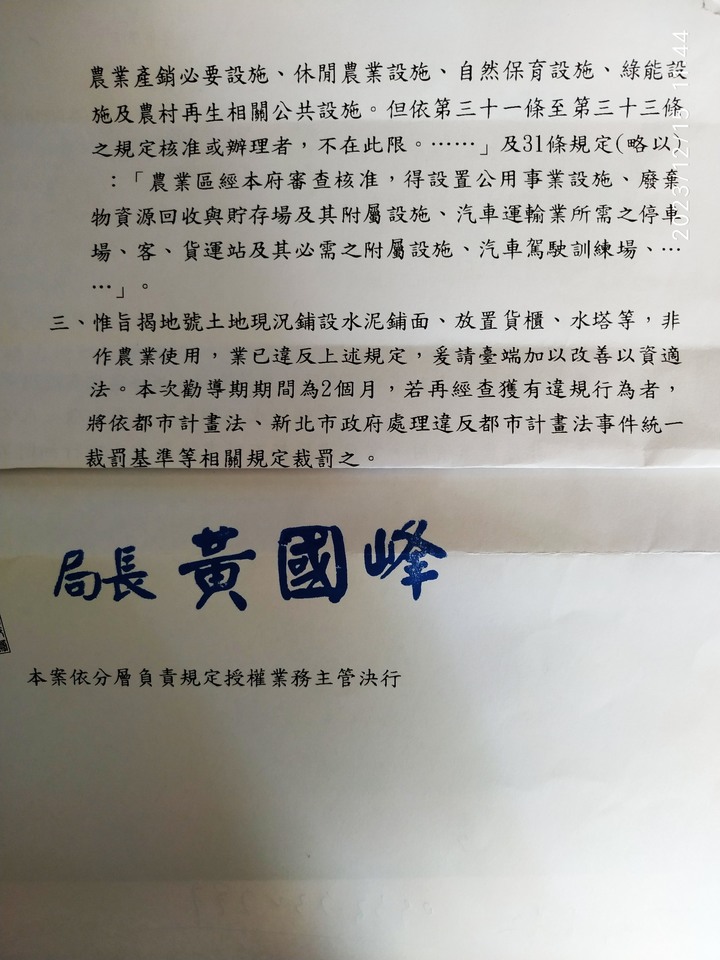 農業產銷必要設施、休閒農業設施、自然保育設施、綠能設
施及農村再生相關公共設施。但依第三十一條至第三十三條
之規定核准或辦理者，不在此限。⋯⋯」及31條規定(略以)
：「農業區經本府審查核准，得設置公用事業設施、廢棄
物資源回收與貯存場及其附屬設施、汽車運輸業所需之停車
場、客、貨運站及其必需之附屬設施、汽車駕駛訓練場、⋯
⋯」。
三、惟旨揭地號土地現況鋪設水泥鋪面、放置貨櫃、水塔等，非
作農業使用，業已違反上述規定，爰請臺端加以改善以資適
法。本次勸導期期間為2個月，若再經查獲有違規行為者，
將依都市計畫法、新北市政府處理違反都市計畫法事件統一
裁罰基準等相關規定裁罰之。
局長 黃國峰
本案依分層負責規定授權業務主管決行